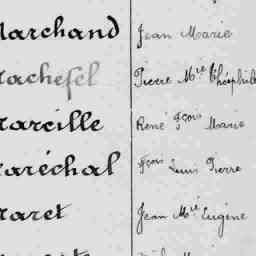 Marchand Jean Marie
Machefel Pierre Mie Théophile
Marcille René Fçois Marie
Maréchal Fçois Louis Pierre
Maret Jean Mie Eugène